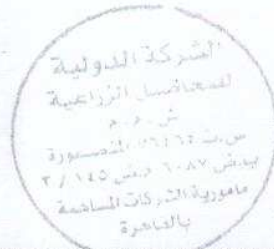 الشركة الدولية
للمحاصيل الزراعية
ش . م . م
س.ت ٢٦٤٦٤ المنصورة
ب.ض ٦٠٨٧ م.ض ١٤٥ / ٣
مأمورية الشركات المساهمة
بالقاهرة